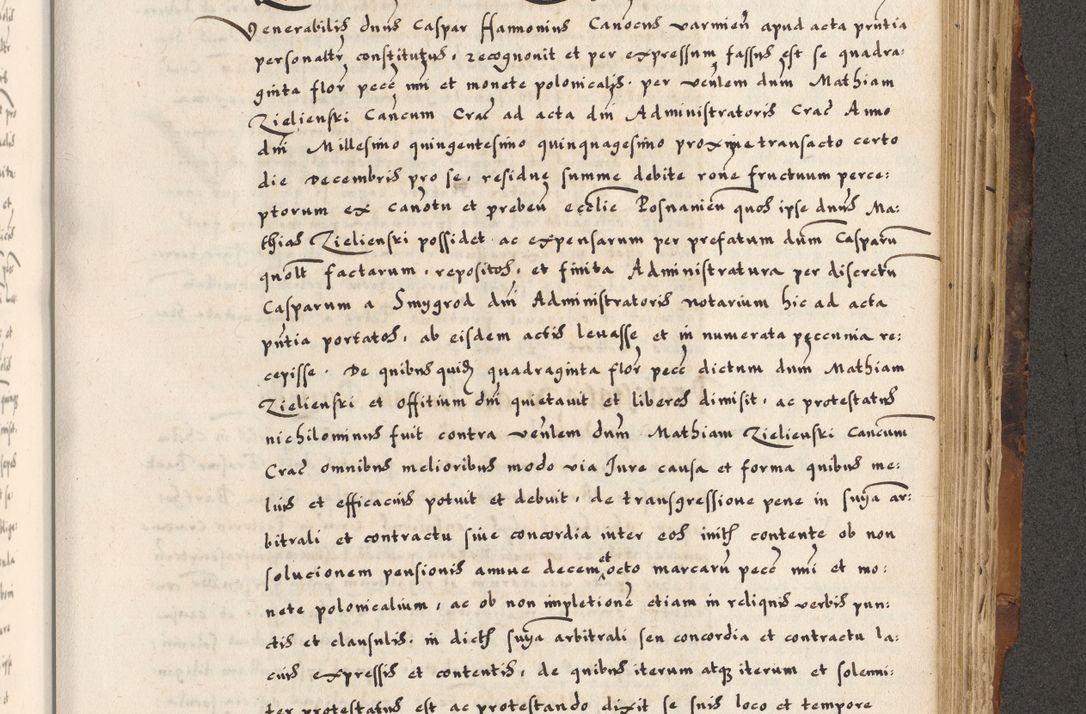 Venerabilis dnus Caspar Hannonius Canocus varmien apud acta pntia
personaltr constitutus, recognouit et per expressum fassus est se quadra:
ginta flor pecc nui et monete polonicalis, per venlem dum Mathiam
Zielienski Cancum Crac ad acta dni Administratoris Crac Anno
dni Millesimo quingentesimo quinquagesimo proxime transacto certo
die Decembris pro se, residue summe debite rone fructuum perce:
ptorum ex canotu et preben ecclie Posnanien quos ipse dnus Ma:
thias Zielienski possidet ac expensarum per prefatum dum Casparu
quolt factarum, repositos, et finita Administratura per discretu
Casparum a Smygrod dni Administratoris notarium hic ad acta
pntia portatos, ab eisdem actis leuasse et in numerata peccunia re:
cepisse. De quibus quidz quadraginta flor pecc dictum dum Mathiam
Zielienski et offitium dni quietauit et liberos dimisit, ac protestatus
nichilominus fuit contra venlem dum Mathiam Zielienski Cancum
Crac omnibus melioribus modo via Jure causa et forma quibus me:
lius et efficacius potuit et debuit, de transgressione pene in supa ar:
bitrali et contractu siue concordia inter eos initis contente ob non
solucionem pensionis annue decem et octo marcaru pecc nui et mo:
nete polonicalium, ac ob non impletione etiam in reliquis verbis pun:
ctis et clausulis, in dictis supa arbitrali seu concordia et contractu la:
cius expressis et contentis, de quibus iterum atqz iterum et solenni:
ter protestatus est ac protestando dixit se suis loco et tempore